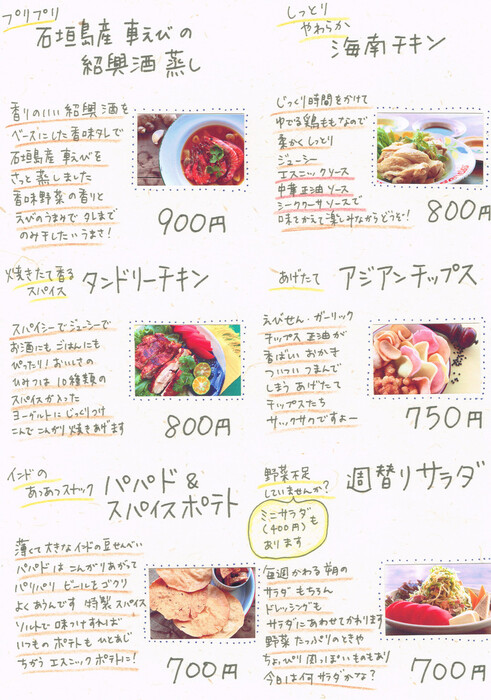 プリプリ
石垣島産 車えびの
紹興酒 蒸し
香りのいい 紹興酒を
ベースにした香味タレで
石垣島産 車えびを
さっと 蒸しました
香味野菜の香りと
えびのうまみで タレまで
のみ干したいうまさ!
900円
しっとり
やわらか
海南チキン
じっくり時間をかけて
ゆでる鶏ももなので
柔かくしっとり
ジューシー
エスニックソース
中華正油ソース
シークワーサソースで
味をかえて楽しみながらどうぞ!
800円
焼きたて香る
スパイス
タンドリーチキン
スパイシーでジューシーで
お酒にも ごはんにも
ぴったり! おいしさの
ひみつは 10種類の
スパイスが入った
ヨーグルトに じっくりつけ
こんで こんがり 焼きあげます
800円
あげたて
アジアンチップス
えびせん・ガーリック
チップス 正油が
香ばしい おかき
ついつい つまんで
しまう あげたて
チップスたち
サックサクですよー
750円
インドの
あつあつスナック
パパド&
スパイスポテト
薄くて大きな インドの豆せんべい
パパドは こんがりあがって
パリパリ ビールをゴクリ
よくあうんです 特製 スパイス
ソルトで 味つけすれば
いつもの ポテトも ひとあじ
ちがう エスニック ポテトに!
700円
野菜不足
していませんか?
ミニサラダ
(400円)も
あります
週替りサラダ
毎週 かわる 旬の
サラダ もちろん
ドレッシングも
サラダにあわせてかわります
野菜 たっぷりのときや
ちょっぴり 肉っぽいものもあり
今日は何 サラダかな?
700円